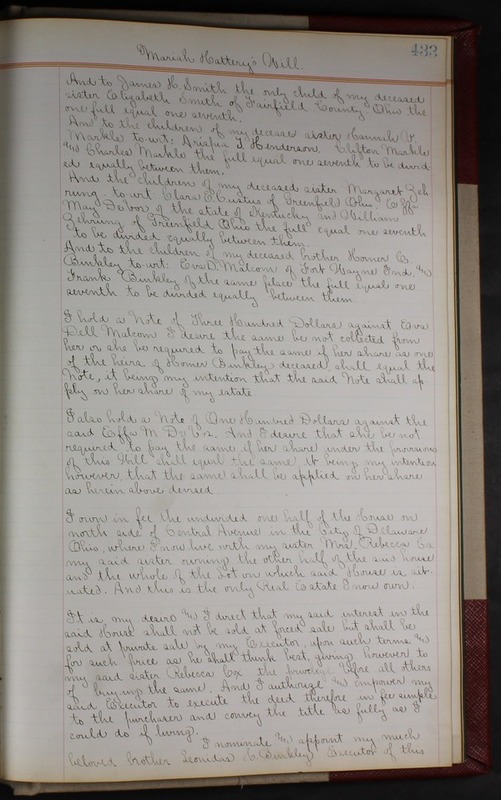 433
Mariah Hattery's Will.
And to James H. Smith the only child of my deceased
sister Elizabeth Smith of Fairfield County Ohio the
one full equal one seventh.
And to the children of my deceased sister Hannah V.
Markle to wit: Henderson, Clifton Markle
& Charles Markle the full equal one seventh to be divid-
ed equally between them.
And the children of my deceased sister Margaret Zeh
rung, to wit Clara E. Custus of Greenfield Ohio, Effa
May DeVor of the state of Kentucky and William
Zehrung of Greenfield Ohio the full equal one seventh
to be divided equally between them.
And to the children of my deceased brother Homer C.
Binkley to wit: Eva D. Malcom of Fort Wayne Ind. &
Frank Binkley of the same place the full equal one
seventh to be divided equally between them.
I hold a Note of Three Hundred Dollars against Eva
Dell Malcom I desire the same be not collected from
her or she be required to pay the same if her share as one
of the heirs of Homer Binkley deceased shall equal the
Note, it being my intention that the said Note shall ap
ply on her share of my estate
I also hold a Note of One Hundred Dollars against the
said Effa M. DeVor. And I desire that she be not
required to pay the same if her share under the provisions
of this Will shall equal the same It being my intention
however that the same shall be applied on her share
as herein above devised
I own in fee the undivided one half of the House on
north side of Central Avenue in the City of Delaware
Ohio, where I now live with my sister Mrs. Rebecca Cox
my said sister owning the other half of the said house
and the whole of the Lot on which said House is sit-
uated. And this is the only Real Estate I now own.
It is my desire & I direct that my said interest in the
said House shall not be sold at forced sale but shall be
sold at private sale by my Executor, upon such terms &
for such price as he shall think best, giving however to
my said sister Rebecca Cox the privilege before all others
of buying the same. And I authorize & empower my
said Executor to execute the deed therefore in fee simple
to the purchaser and convey the title as fully as I
could do if living.
I nominate & appoint my much
beloved brother Leonidas H. Binkley Executor of this